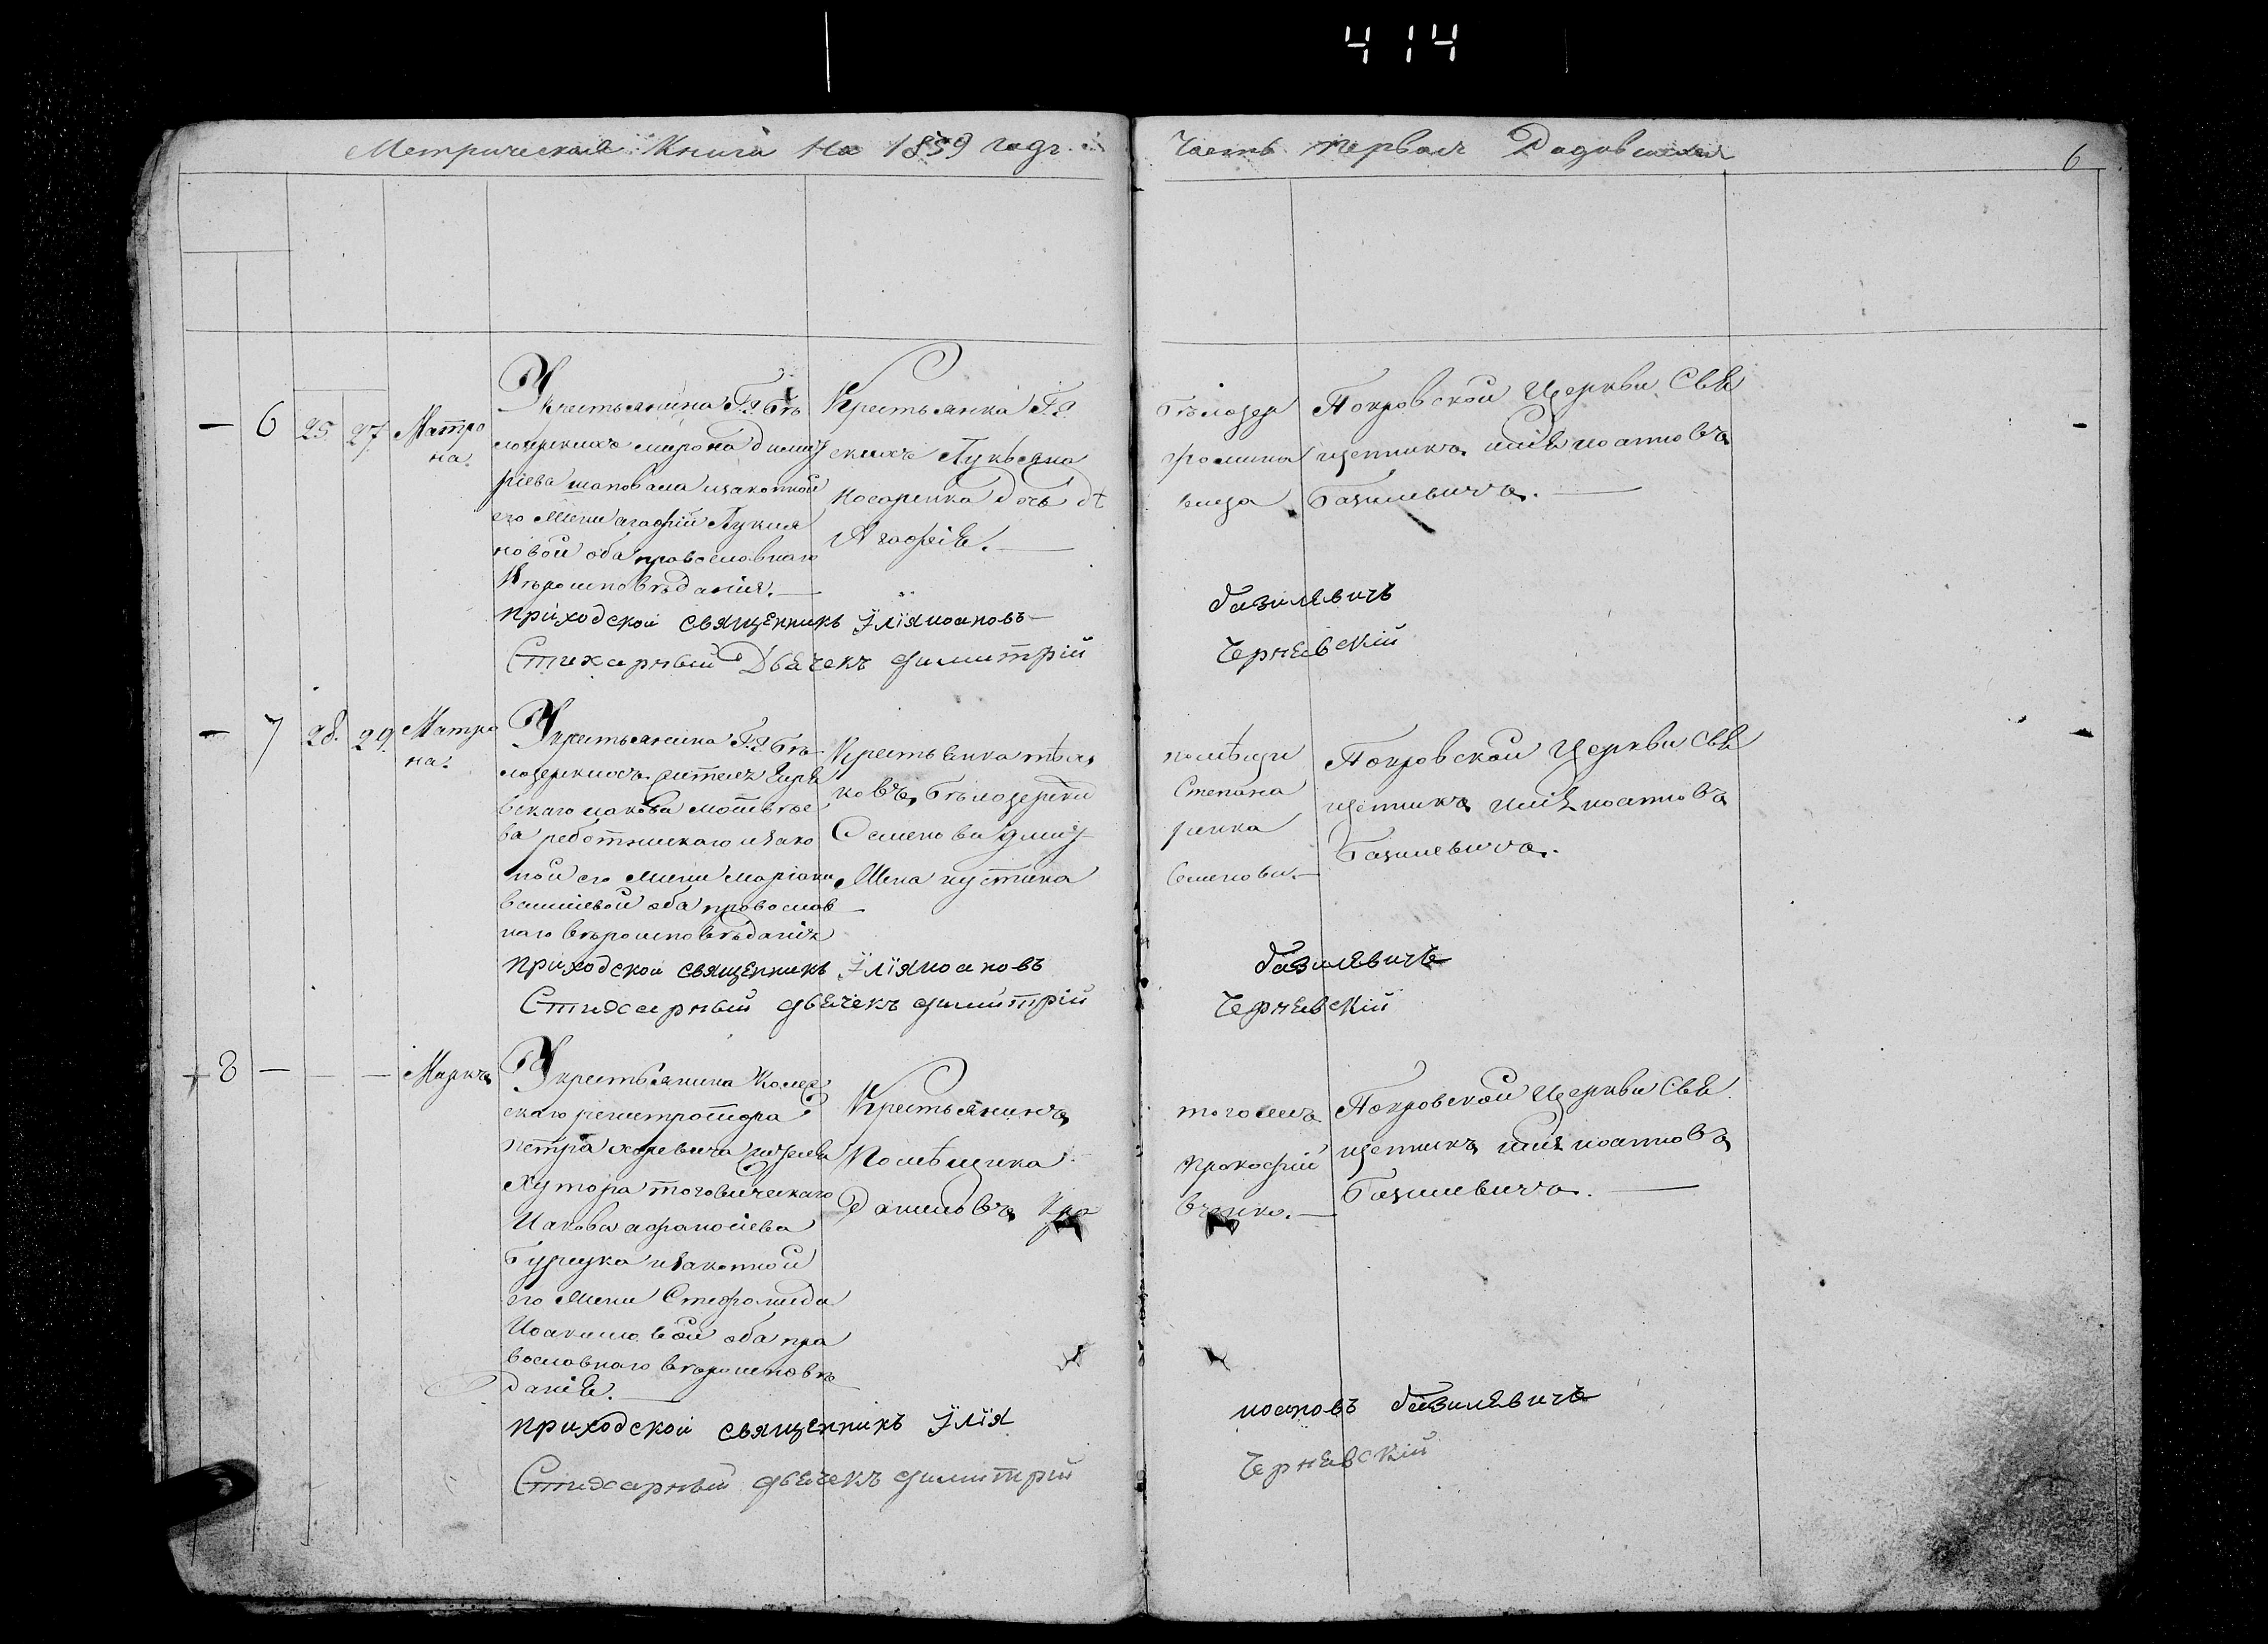 414
Метрическая Книга На 1859 годъ.
Часть первая
6
— 6 25. 27. Матро
на.
Укрестьянина Г.Г. Бѣ
лозерскихъ мирона димит
ріева шаповала изаконной
его жени агафіи Лукия
новой оба православнаго
Вѣроисповѣданія.—
Крестьянка Г.Г.
скихъ Лукьяна
носаренка дочь
Агафія.—
Бѣлозер
Покровской Церкви Свя
щенникъ илія иоанновъ
Базилевичъ.—
приходской священникъ Ілія иоановъ—
базилевичъ
Стихарный Дьячекъ димитрій
Чернявскій
— 7 28. 29. Матро
на.
Укрестьянина Г.Г. Бѣ
лозерскихъ
вскаго иакова матвѣе
ва изако
ной его жени маріани
оба православ
наго вѣроисповѣданія
Крестьянка
ковъ, Бѣлозерки
Семенова
Жена иустина
помѣщи
Степана
ренка
Семенова.—
Покровской Церкви Свя
щенникъ илія иоанновъ
Базилевичъ.
приходской священникъ Ілія иоановъ
базилевичъ
Стихарный дьячекъ димитрій
Чернявскій
+ 8 — — — Маркъ
Укрестьянина Колеж
скаго регистратора
петра
Хутора
Иакова афанасіева
изаконной
его жени Стефанида
Иоакимовой оба пра
вославнаго вѣроисповѣ
данія.—
Крестьянинъ
Помѣщика
Даниловъ, Кра
тогожъ
прокофій
вченко.—
Покровской Церкви Свя
щенникъ илія иоанновъ
Базилевичъ.—
приходской священникъ Ілія
иоановъ базилевичъ
Стихарный дьячекъ димитрій
Чернявскій